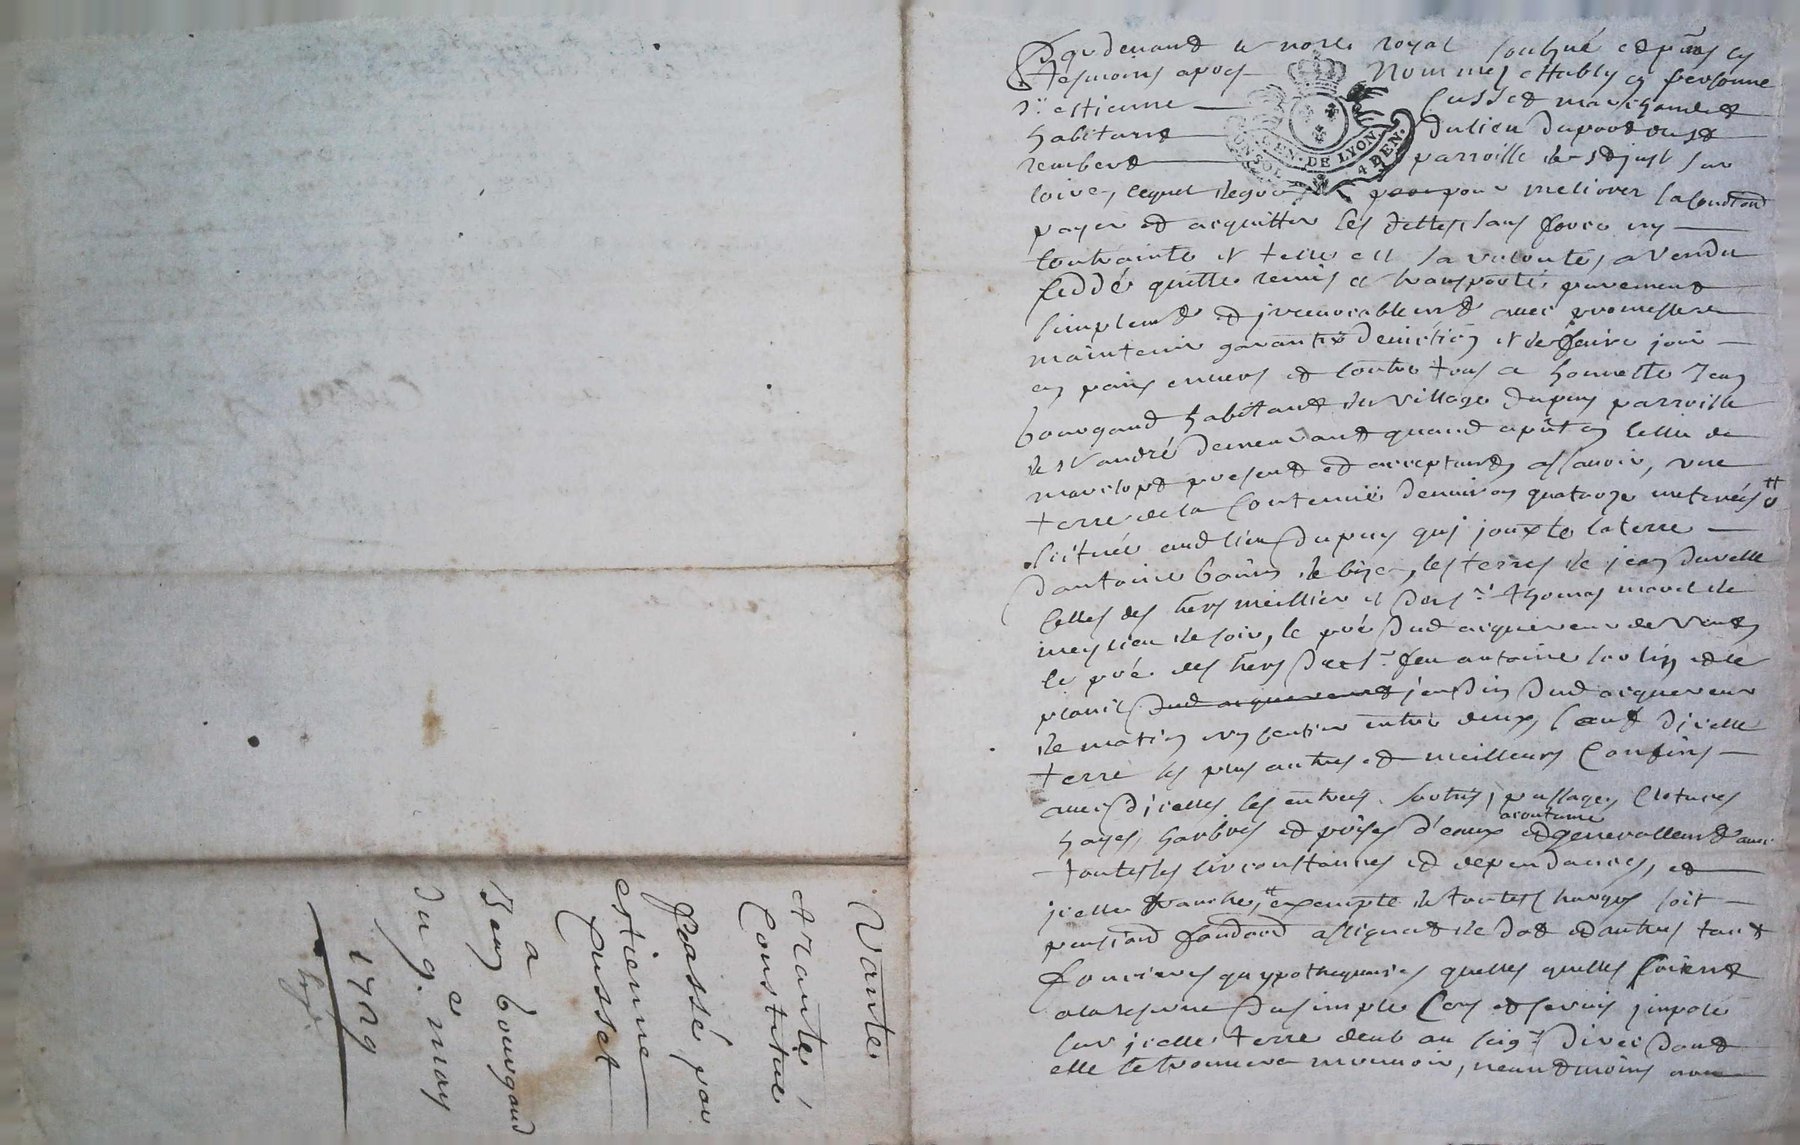 Vante
a rante
Constitué
passé par
estienne
Cusset
a
Jean bourgand
du 9.e may
1729
Pardevant le notre royal soubsigné et puis les
tesmoins apres nommes estably en personne
sr estienne Cusset marchand
habitant du lieu du port du st
rembert parroisse de st just sur
loire, lequel de gré pour meliorer sa condition
payer et acquitter ses dettes sans force ny
contrainte et telle est sa volonté, a vendu
ceddé quitté remis et transporté purement
simplemt et jrrevocablemt avec promesse de
maintenir garantir deviction et de faire jouir
en paix envers et contre tous a honnette Jean
bourgand habitant du village du puy parroisse
de st andré demeurant quand a pnt en celle de
marclopt present et acceptant, assavoir, une
terre de la contenue denviron quatorze meterées
scituée audt lieu du puy qui jouxte la terre
dantoine de bize, les terres de jean
celles des hers meillier et du sr thomas
de soir, le pré dudt acquereur de vent
le pré des hers du sr feu antoine et le
dud acquereur jardin dud acquereur
de matin un sentier entre deux, sauf dicelle
terre les plus autres et meilleurs confins
avec dicelles les entrées sorties, passages clotures
hayes, harbres et prises d'eaux acoutumé et generallemt avec
toutes les circonstances et dependances, et
jcelle franche, et exempte de toutes charges soit
pensions fondaon assignaon de dot et autres tant
foncieres quypothequaires quelles quelles soient
a la reserve du simple Cens et servis jmposé
sur jcelle terre deub au seigr direct dont
elle se trouvera mouvoir, neantmoins
GEN. DE LYON
4 DEN.